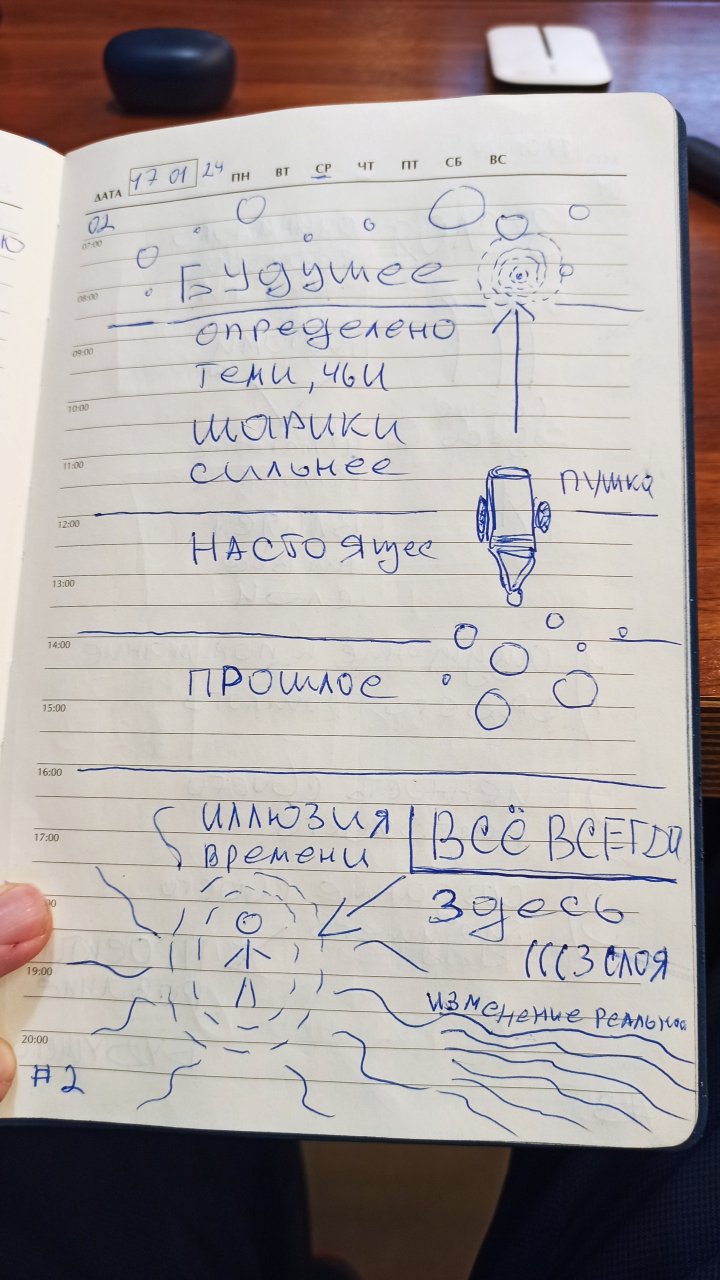 ДАТА 17 01 24 ПН ВТ СР ЧТ ПТ СБ ВС
02
07:00
Будущее
08:00
определено
09:00
теми, чьи
10:00
шарики
сильнее
11:00
пушка
12:00
Настоящее
13:00
14:00
прошлое
15:00
16:00
иллюзия
времени
ВСЁ ВСЕГДА
17:00
здесь
(((3 слоя
19:00
изменение реальнос
20:00
#2